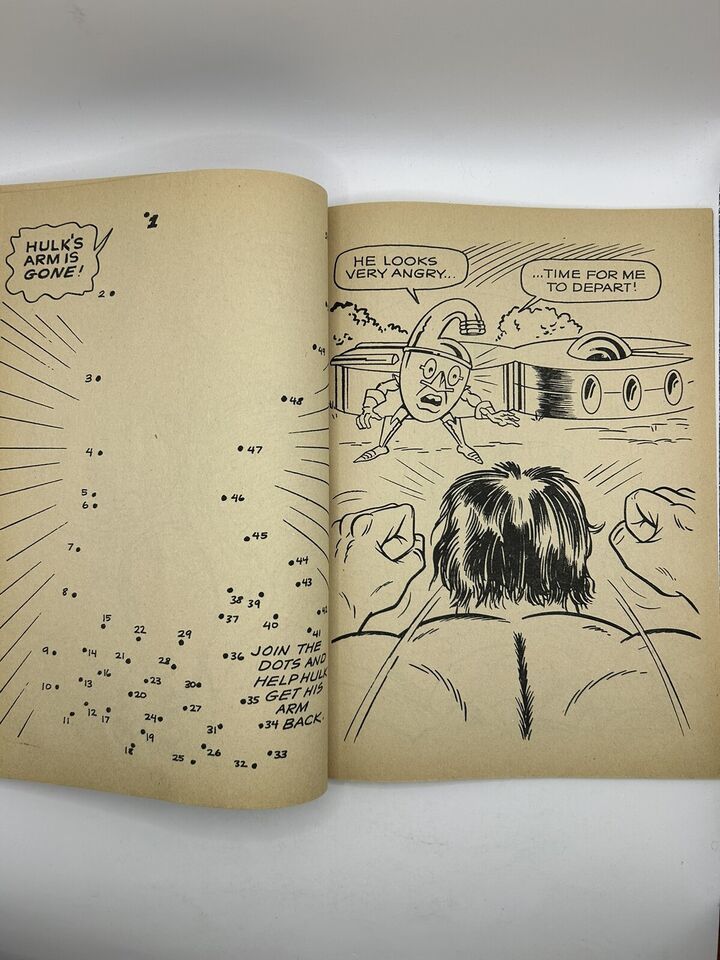 HULK'S
ARM IS
GONE!
1
2
3
4
5
6
7
8
9
10
11
12
13
14
15
16
17
18
19
20
21
22
23
24
25
26
27
28
29
30
31
32
33
34
35
36
37
38
39
40
41
42
43
44
45
46
47
48
49
JOIN THE
DOTS AND
HELP HULK
GET HIS
ARM
BACK.
HE LOOKS
VERY ANGRY...
...TIME FOR ME
TO DEPART!